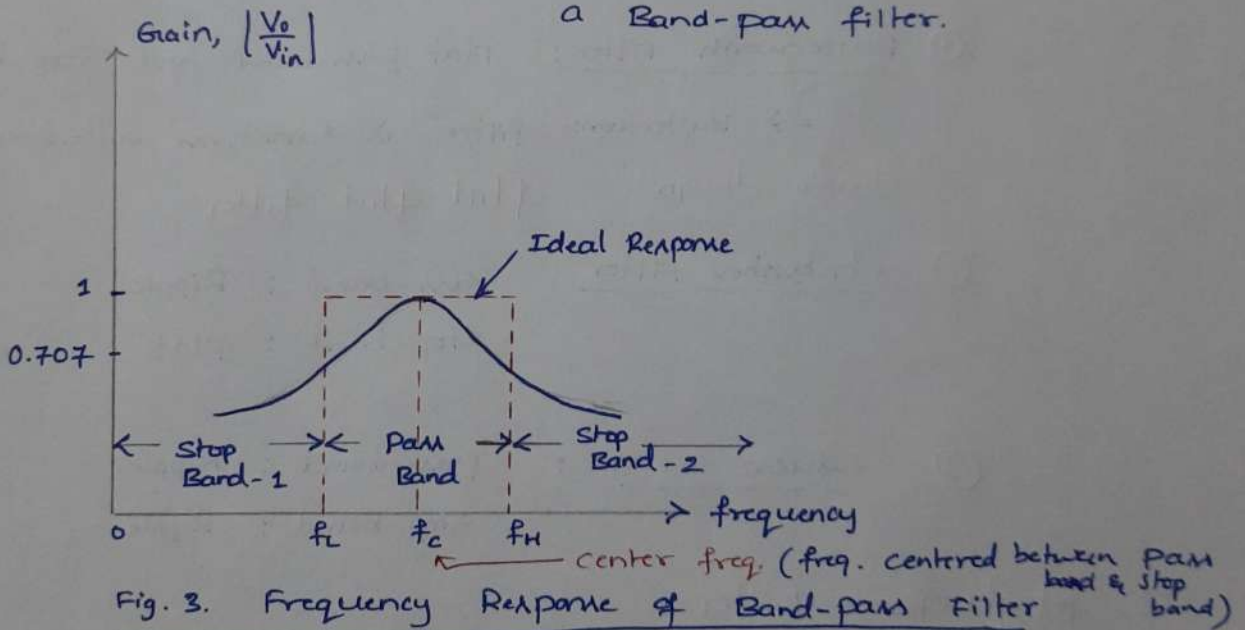 a Band-pass filter.
Gain, |Vo/Vin|
Ideal Response
1
0.707
Stop Band-1
Pass Band
Stop Band-2
0
fL
fC
fH
frequency
center freq. (freq. centered between pass band & stop band)
Fig. 3. Frequency Response of Band-pass Filter